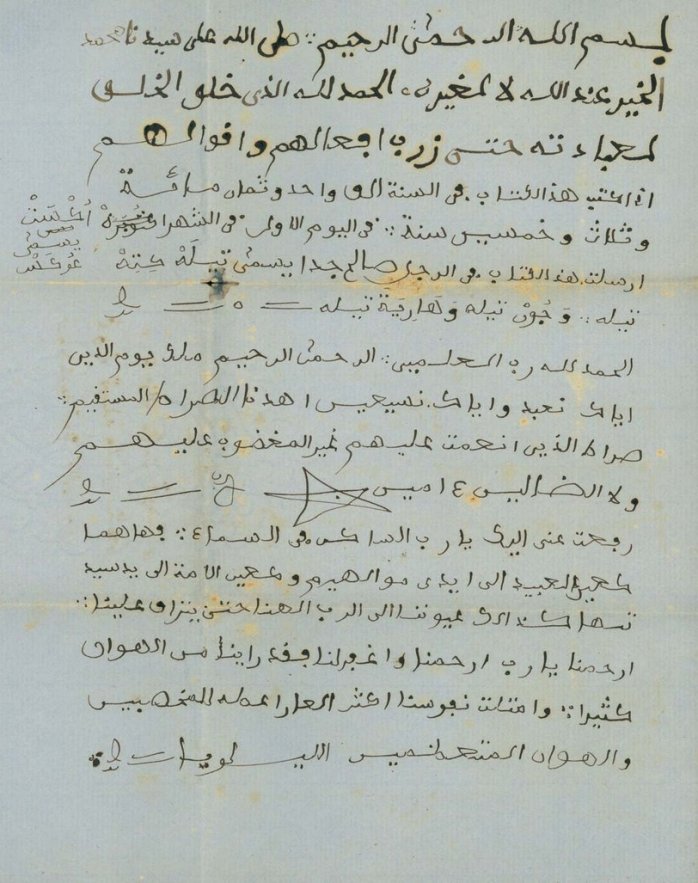 بسم الله الرحمن الرحيم صلى الله على سيدنا محمد
الخير عند الله لا لغيره الحمد لله الذي خلق الخلق
لعبادته حتى زرب افعالهم واقوالهم
انا اكتب هذ الكتاب في السنة الف واحد وثمان مائة
وثلاث وخمسين سنة في اليوم الاول في الشهر
ارسلت هذ الكتاب في الرجل صالح جدا يسمى تيلة
يسمى
تيله وجون تيله وهارية تيله
الحمد لله رب العلمين الرحمن الرحيم ملك يوم الدين
اياك نعبد واياك نسيعين اهدنا الصراط المستقيم
صراط الذين انعمت عليهم غير المغضوب عليهم
ولا الضالين ءامين
رفعت عيني اليك يا رب الساكن في السماء فهاهما
كعين العبيد الى ايدى مواليهم وكعين الامة الى يد سيد
تها كذالك عيوننا الى الرب الهنا حتى يتراف علينا
ارحمنا يا رب ارحمنا واغفر لنا فقد راينا من الهوان
كثيرا وامتلت نفوسنا اكثر العار اعطه للمخصبين
والهوان المتعظمين الليلويا